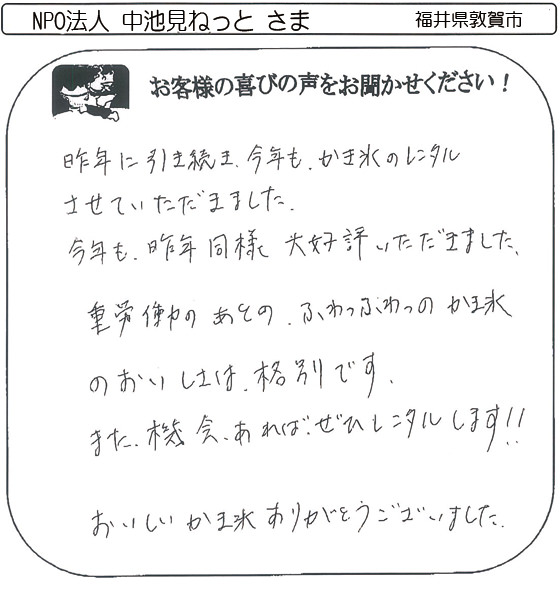 NPO法人 中池見ねっと さま
福井県敦賀市
お客様の喜びの声をお聞かせください！
昨年に引き続き、今年も、かき氷のレンタル
させていただきました。
今年も、昨年同様、大好評いただきました。
重労働のあとの、ふわっふわっのかき氷
のおいしさは、格別です。
また、機会、あれば、ぜひレンタルします!!
おいしいかき氷ありがとうございました。